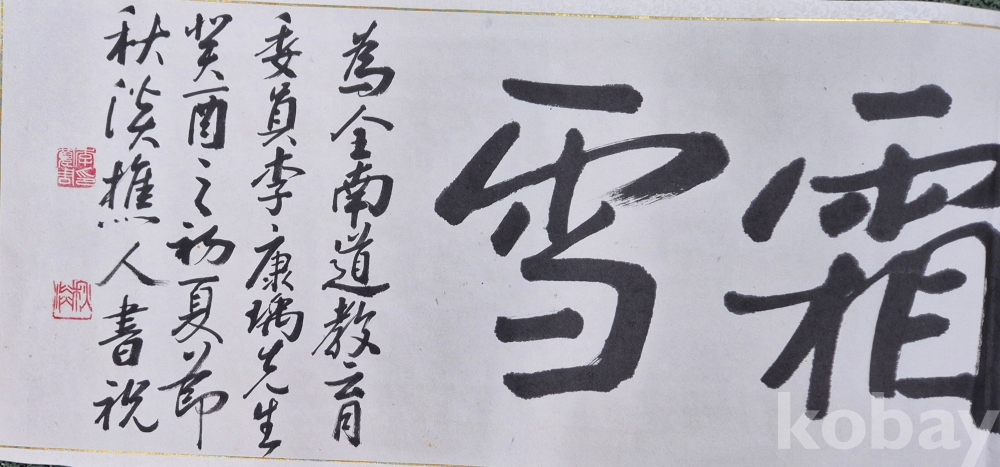 霜雪
為全南道教育
委員李康瑀先生
癸酉之初夏節
秋淡樵人書祝
kobay